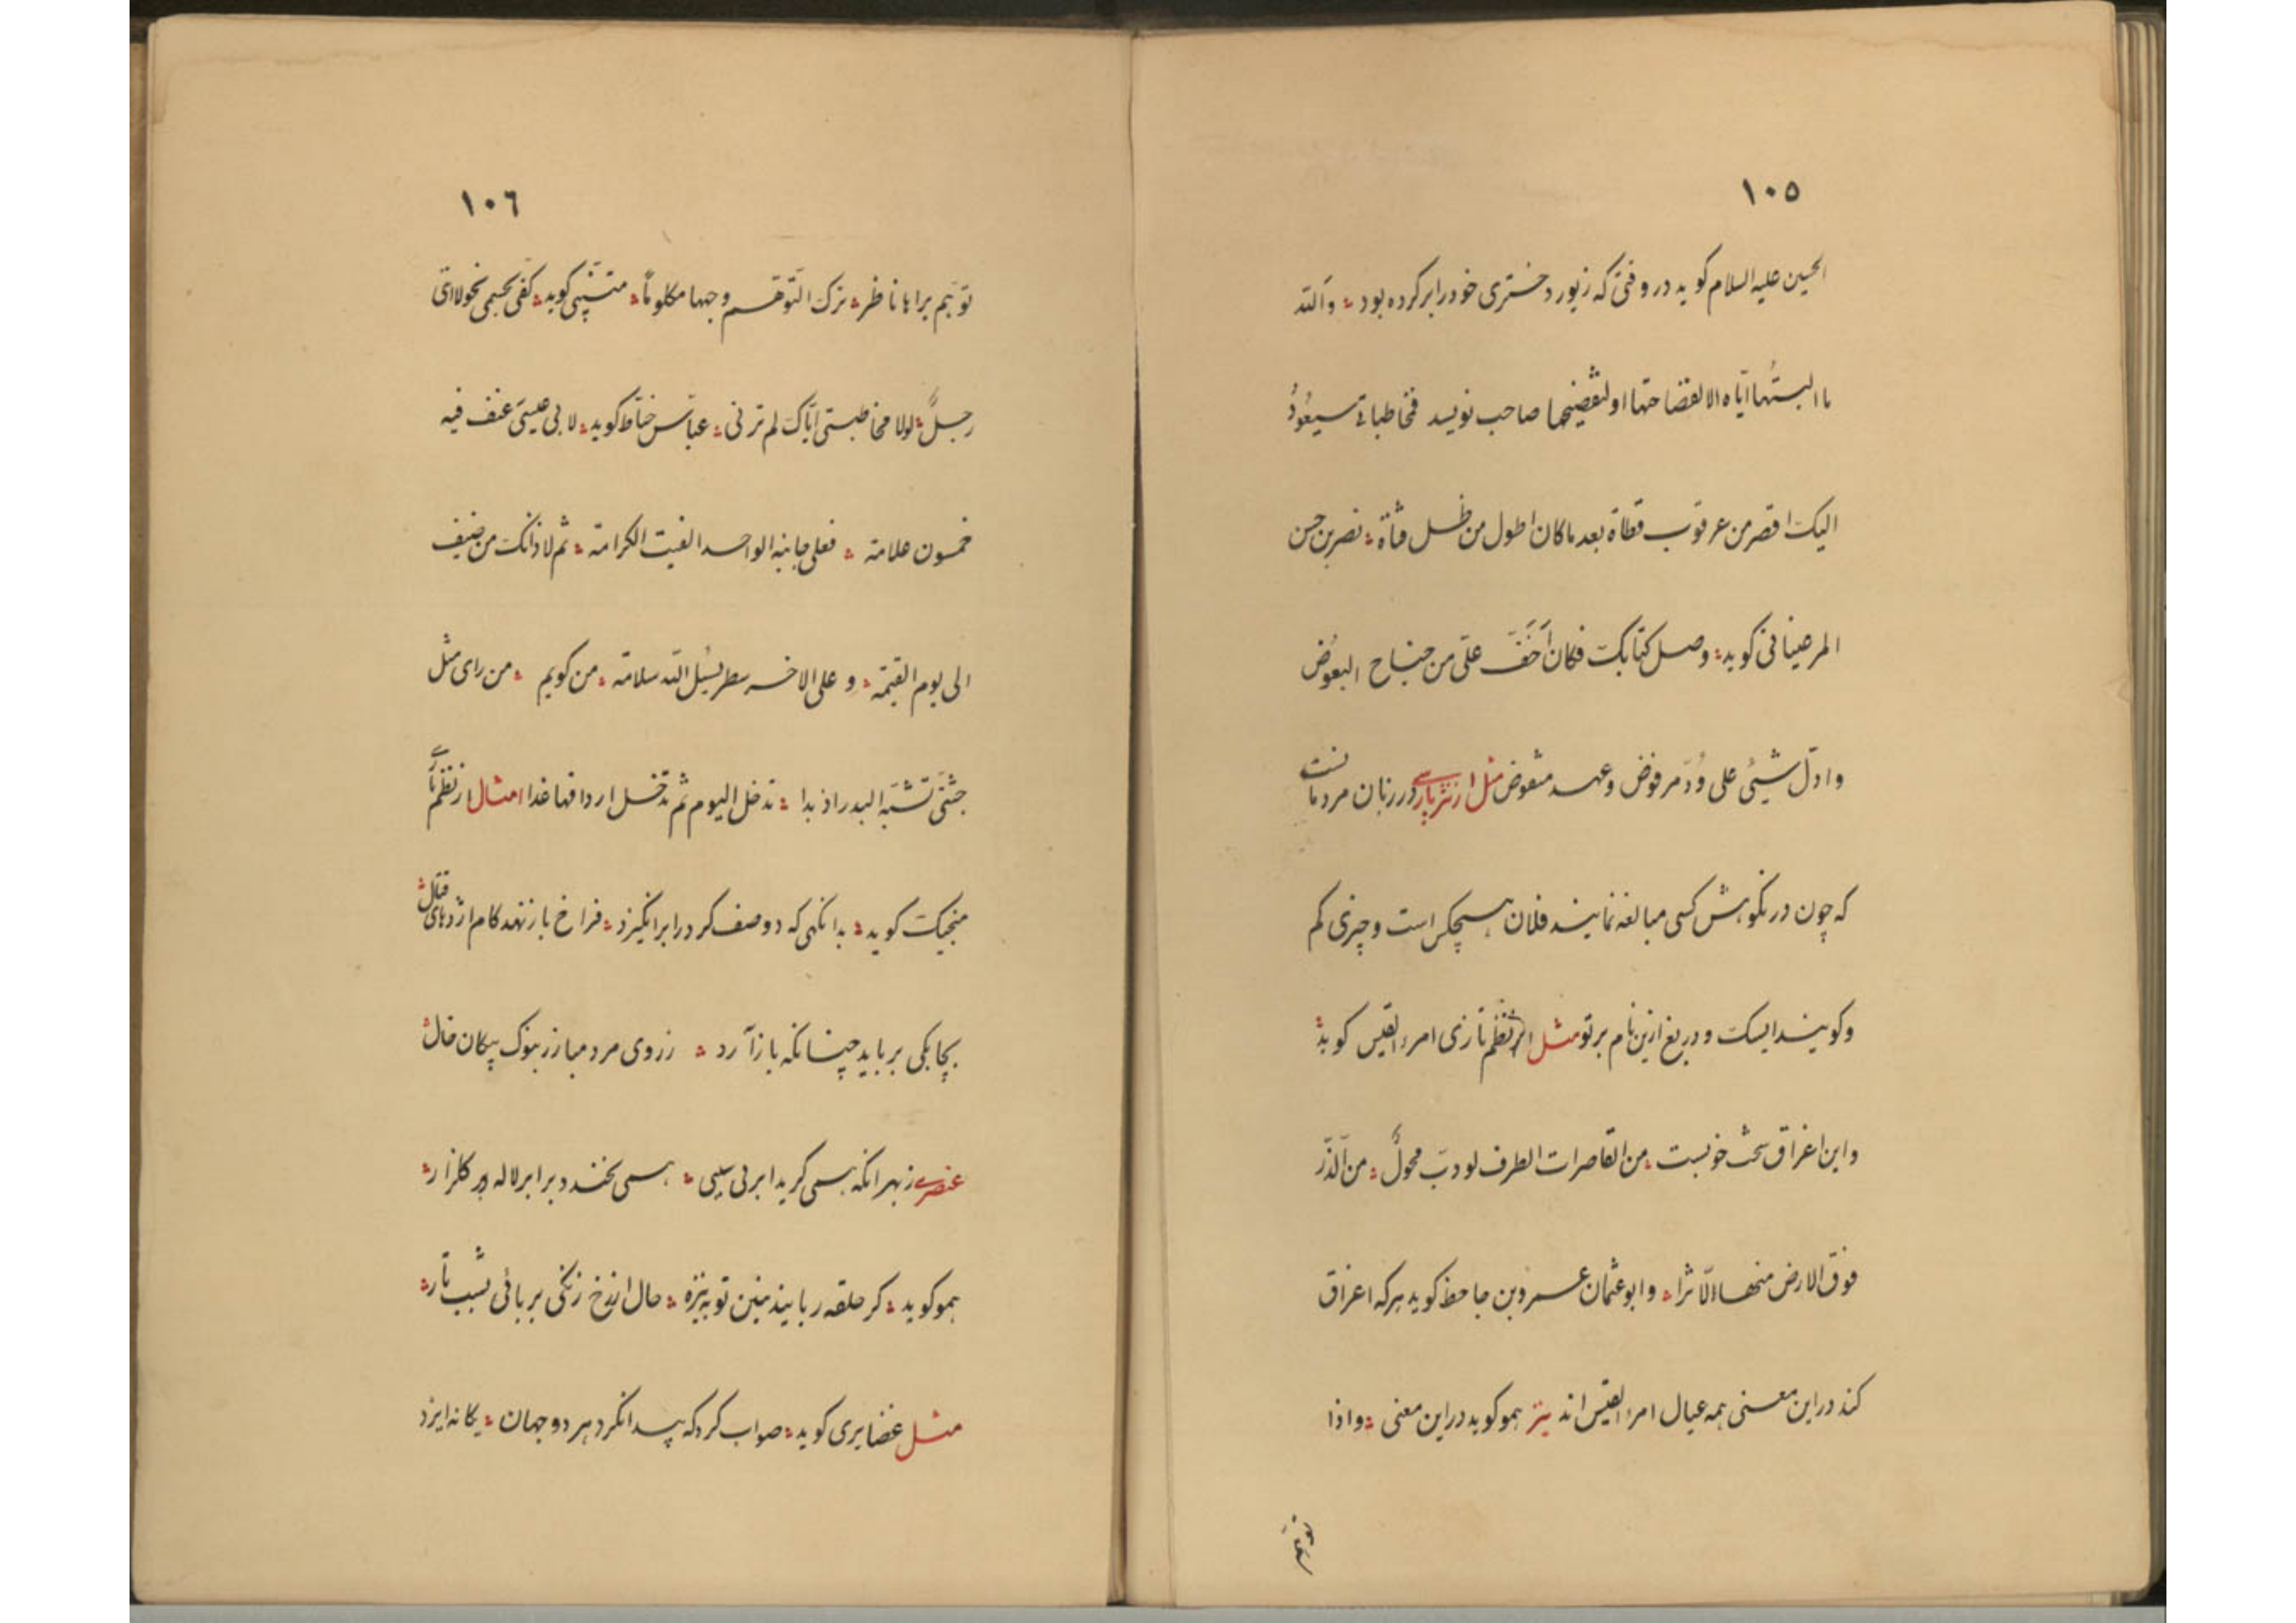 ١٠٥
الحسین علیه السلام کوید در وقتی که زیور دختری خود را بر کرده بود ؞ والله
ما البستُها ایّاه الا لفضاحتها او لتفضیحها صاحب نویسد فخاطباتی سیعُودُ
الیک اقصر من عرقوب قطاة بعد ما کان اطول من ظل قناة ؞ نصر بن حسن
المرعینانی کوید ؞ وصل کتابک فکان اَخَفَّ علیّ من جناح البعوض
و ادلّ شیئ علی وُدّ مرفوض و عهد منقوض مثل از نثر پارسی در زبان مردمانست
که چون در نکوهش کسی مبالغه نمایند فلان هیچکس است و چیزی کم
و کویند ایسک و دریغ ازین نام بر تو مثل از نظم تازی امرء القیس کوید ؞
و این اغراق سخت خوبست ؞ من القاصرات الطرف لو دبّ محولٌ ؞ من الذّر
فوق الارض منها الّاثرا ؞ و ابو عثمان عمرو بن جاحظ کوید هر که اغراق
کند در این معنی همه عیال امرء القیس اند نیز همو کوید در این معنی ؞ و اذا
١٠٦
توهّم براها ناظر ؞ ترک التّوهّم وجهها مکلوماً ؞ متنبّی کوید ؞ کفی بجسمی نحولا انّی
رجلٌ ؞ لولا مخاطبتی ایّاک لم ترنی ؞ عباس خیّاط کوید ؞ لابی عیسی عنف فیه
خمسون علامة ؞ فعلی جانبه الواحد الفیت الکرامة ؞ ثم لا ذانک من ضیف
الی یوم القیمة ؞ و علی الاخر سطر یسئل الله سلامة ؞ من کویم ؞ من رای مثل
جثتی تشبّه البدر اذ بدا ؞ تدخل الیوم ثم تدخل اردافها غدا امثال از نظم پارسی
منجیک کوید ؞ بدانکهی که دو صف کرد را بر انکیزد ؞ فراخ باز نهد کام اژدهای قتال ؞
بچابکی برباید چنانکه باز آرد ؞ ز روی مرد مبارز بنوک پیکان خال ؞
عنصری ز بهر انکه همی کرید ابر بی سببی ؞ همی بخندد بر ابر لاله و کلزار ؞
همو کوید ؞ کر حلقه ربایند منین تو به نیزه ؞ خال از رخ زنکی بربائی بشب تار ؞
مثل غضایری کوید ؞ صواب کرد که پیدا نکرد هر دو جهان ؞ یکانه ایزد